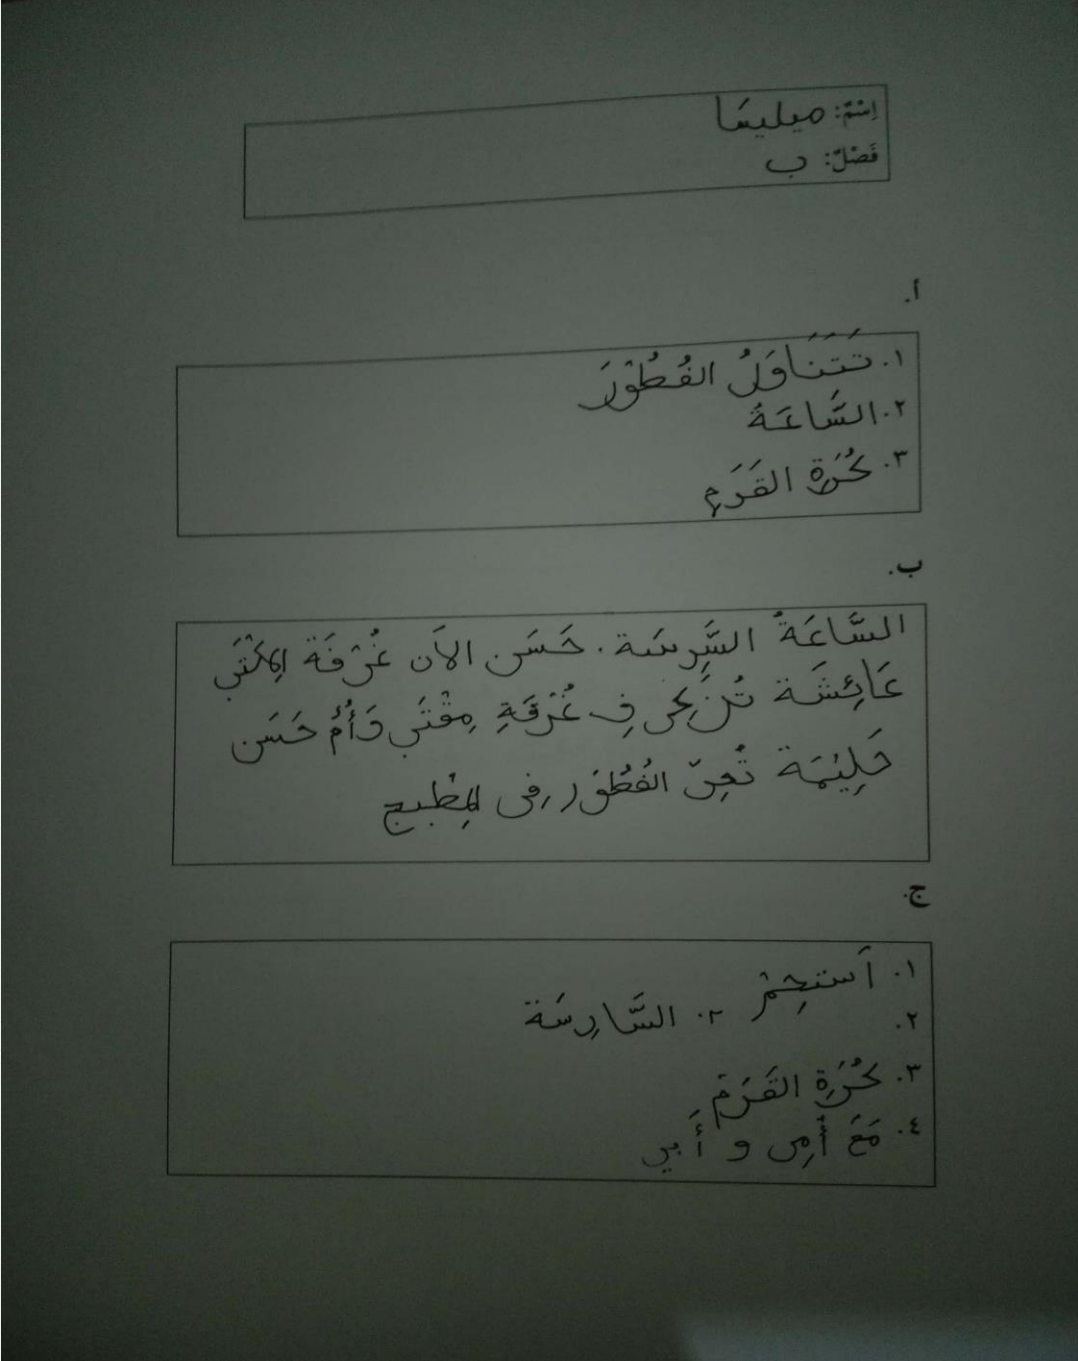 اِسْمٌ: ميليسَا
فَصْلٌ: ب
أ.
١. تَتَنَاوَلُ الفُطُوْرَ
٢. السَّاعَةُ
٣. كُرَةِ القَرَمِ
ب.
السَّاعَةُ السَّرِسَة. حَسَن الاَن غُرْفَة المِكْتَبِ
عَائِشَة فِي غُرْفَةِ مِقْتَبِ وَأُمُّ حَسَن
حَلِيْمَة تُعِدّ الفُطُوْر فِى المِطْبج
ج.
١. اَستحِمْ ٢. السَّارِسَة
٢.
٣. كُرَةِ القَرَمِ
٤. مَعَ أُمِى و أَبي